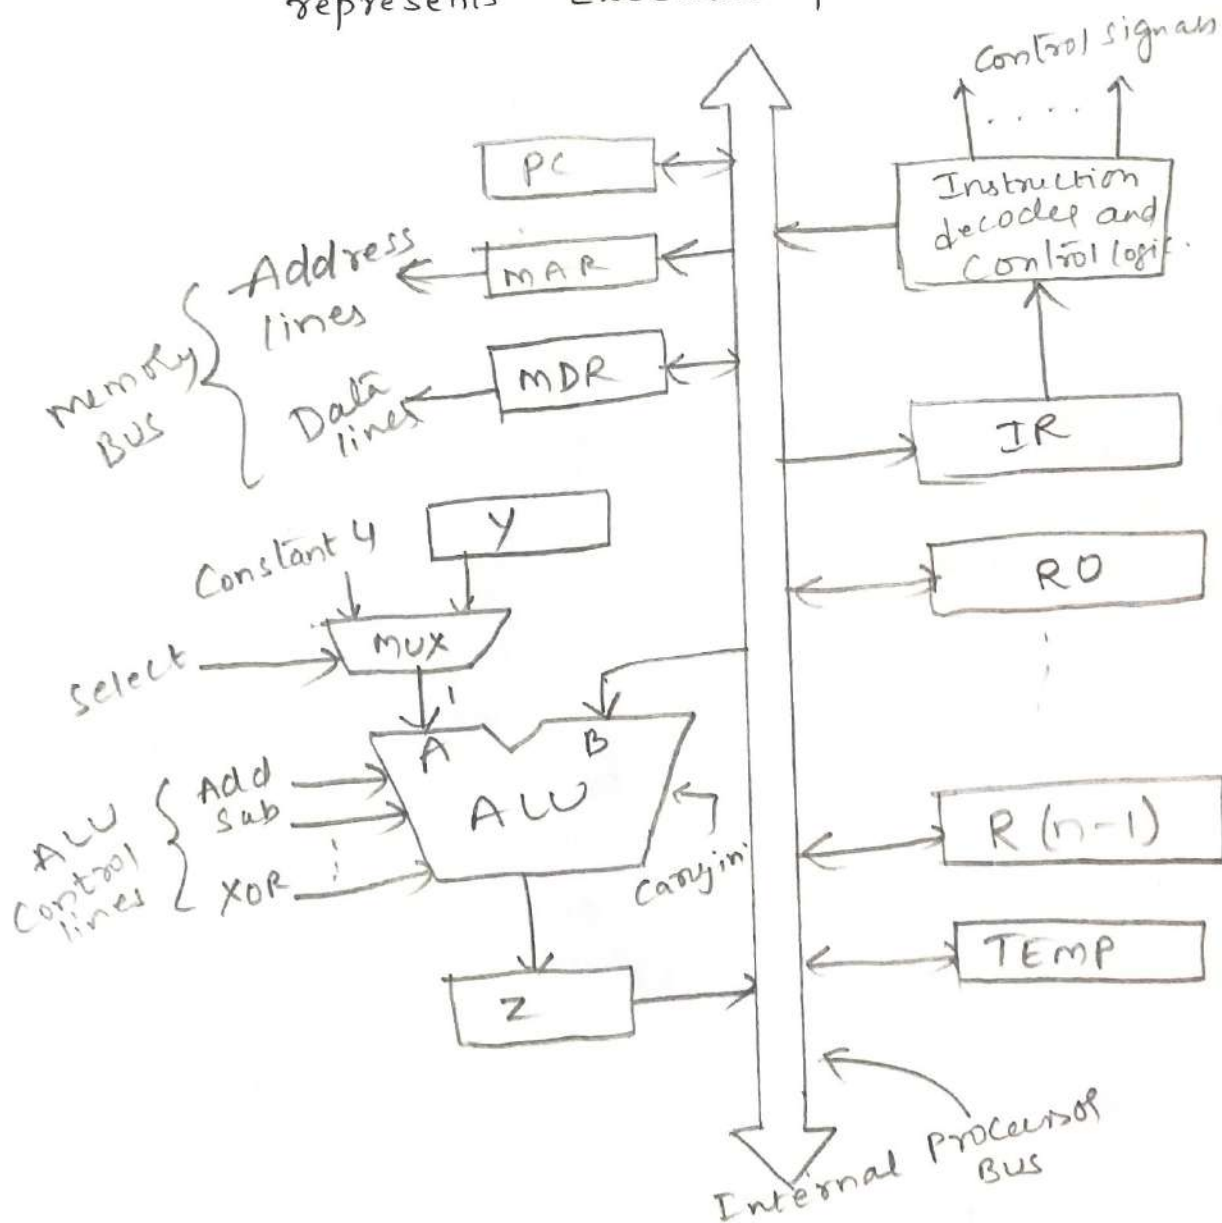 represents
Control signals
PC
Instruction
decoder and
Control logic.
Address
lines
MAR
Memory
BUS
Data
lines
MDR
IR
Constant 4
Y
R0
MUX
Select
A
B
ALU
ALU
Control
lines
Add
Sub
XOR
Carryin
R (n-1)
TEMP
Z
Internal Processor
BUS